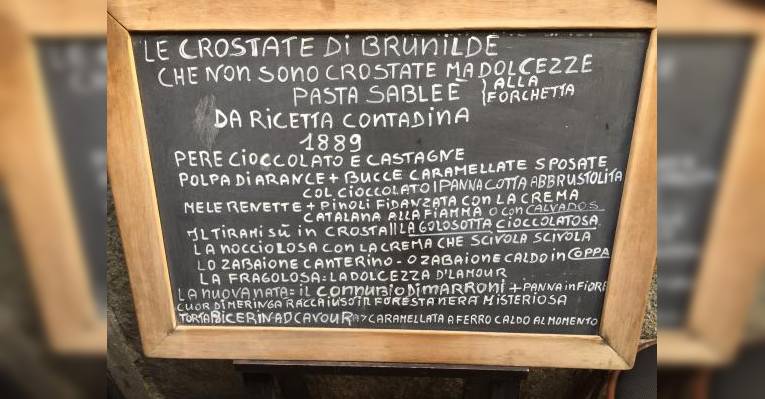 LE CROSTATE Di BRUNILDE
CHE NON SONO CROSTATE MA DOLCEZZE
PASTA SABLEÈ } ALLA FORCHETTA
DA RICETTA CONTADINA
1889
PERE CIOCCOLATO E CASTAGNE
POLPA Di ARANCE + BUCCE CARAMELLATE SPOSATE
COL CIOCCOLATO | PANNA COTTA ABBRUSTOLITA
MELE RENETTE + PINOLI FIDANZATA CON LA CREMA
CATALANA ALLA FIAMMA O CON CALVADOS
IL TIRAMI SÙ in CROSTA | LA GOLOSOTTA CIOCCOLATOSA
LA NOCCIOLOSA CON LA CREMA CHE SCIVOLA SCIVOLA
LO ZABAIONE CANTERINO - O ZABAIONE CALDO in COPPA
LA FRAGOLOSA: LA DOLCEZZA D'LAMOUR
LA NUOVA NATA: IL CONNUBIO DI MARRONI + PANNA in FIORE
CUOR DI MERINGA RACCHIUSO IN FORESTA NERA MISTERIOSA
TORTA BICERIN AD CAVOUR CARAMELLATA A FERRO CALDO AL MOMENTO